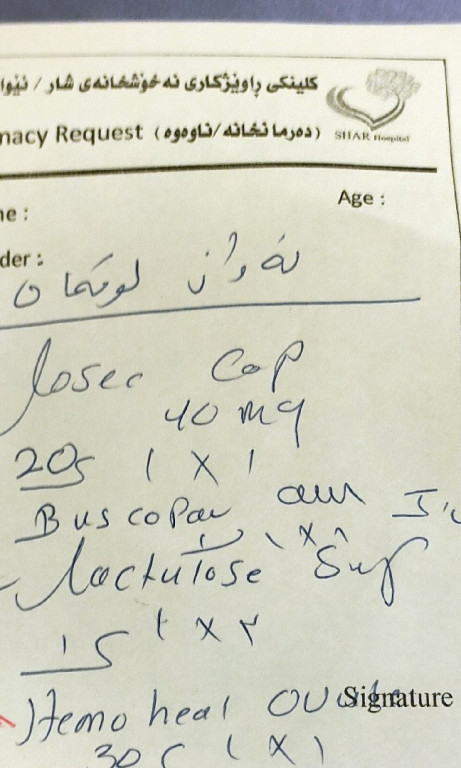 کلینکی ڕاوێژکاری نەخۆشخانەی شار / نێوا
macy Request (دەرمانخانە/ناوەوە)
SHAR Hospital
me :
Age :
der :
لوقمان
losec Cap
40 mg
20s 1 X 1
Buscopan am I.
1 1 X 1
lactulose Syp
1s 1 X ٢
Signature
Hemoheal
30s 1 X 1